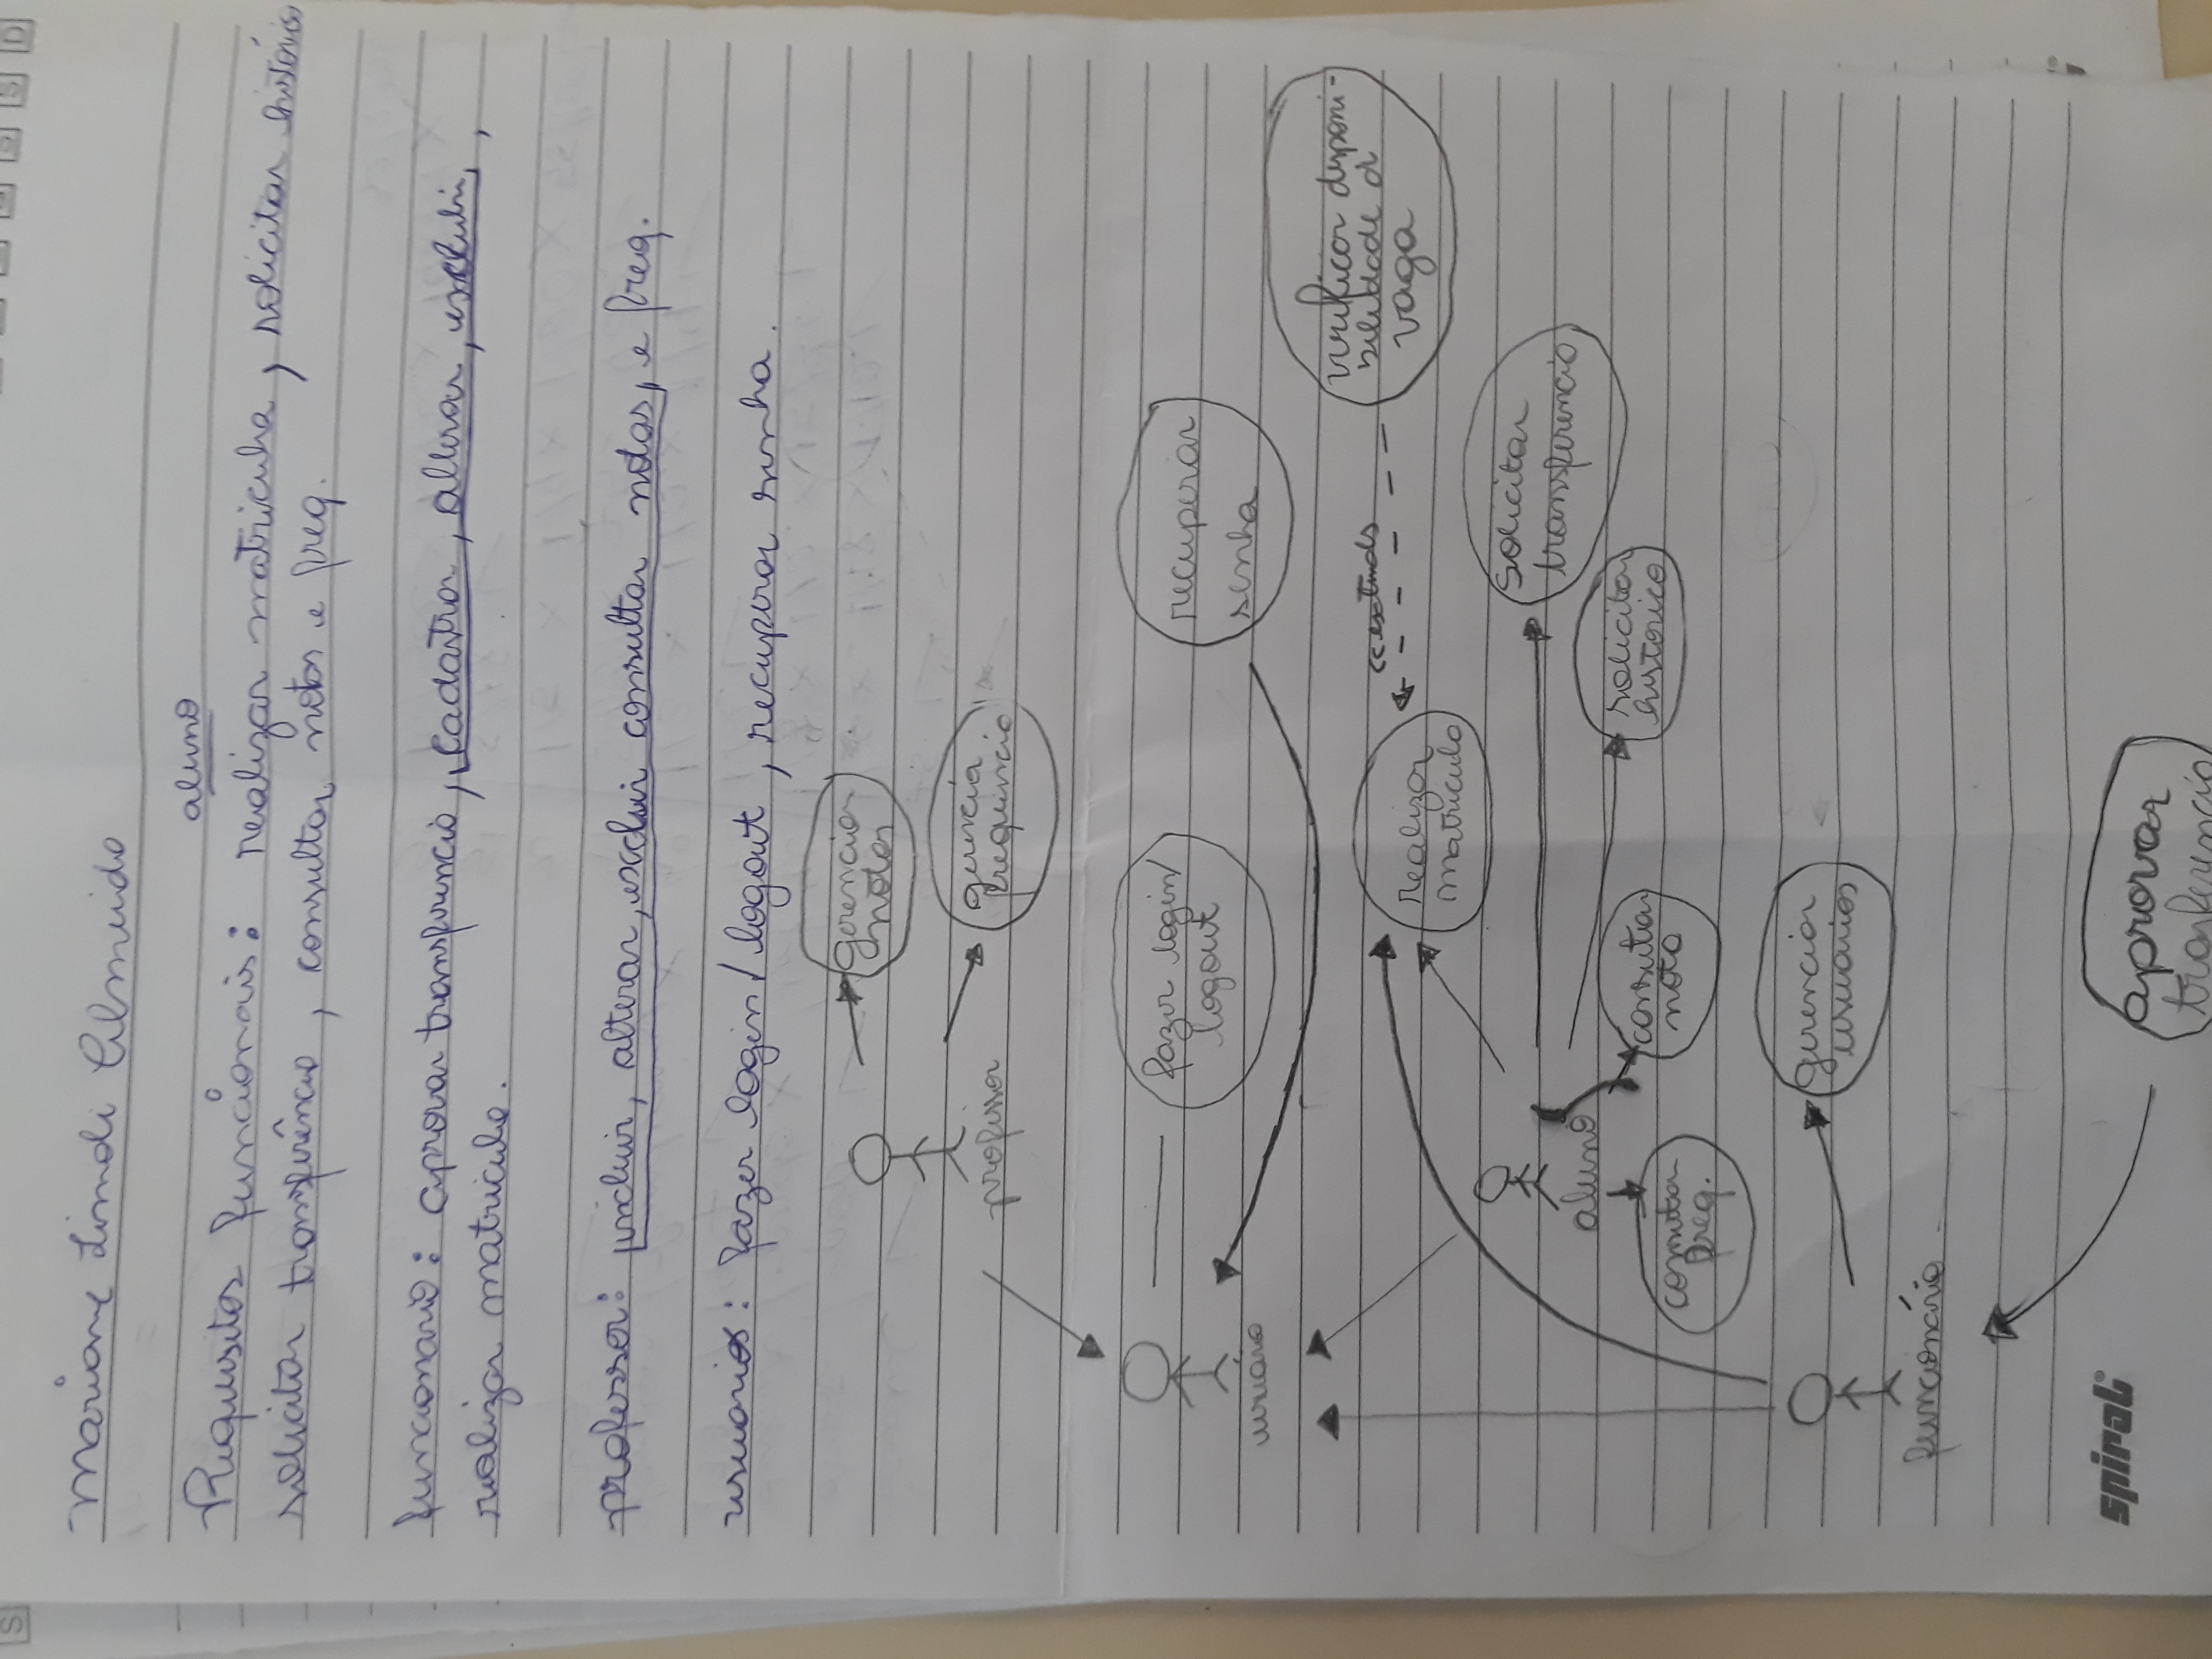 Mariane Lindi Almeida
aluno
Requisitos funcionais: realizar matricula, solicitar histórico,
solicitar transferência, consultar notas e freq.
funcionario: aprovar transferencia, cadastrar, alterar, excluir,
realizar matricula.
professor: incluir, alterar, excluir consultar notas, e freq.
usuarios: fazer login/logout, recuperar senha.
gerenciar
notas
gerencia
frequencia
professor
fazer login/
logout
recuperar
senha
usuário
verificar disponi-
bilidade d
vaga
<<extends
realizar
matricula
solicitar
transferencia
aluno
solicitar
historico
consutar
nota
consutar
freq.
gerenciar
usuarios
funcionário
spiral
aprovar
trasferencia